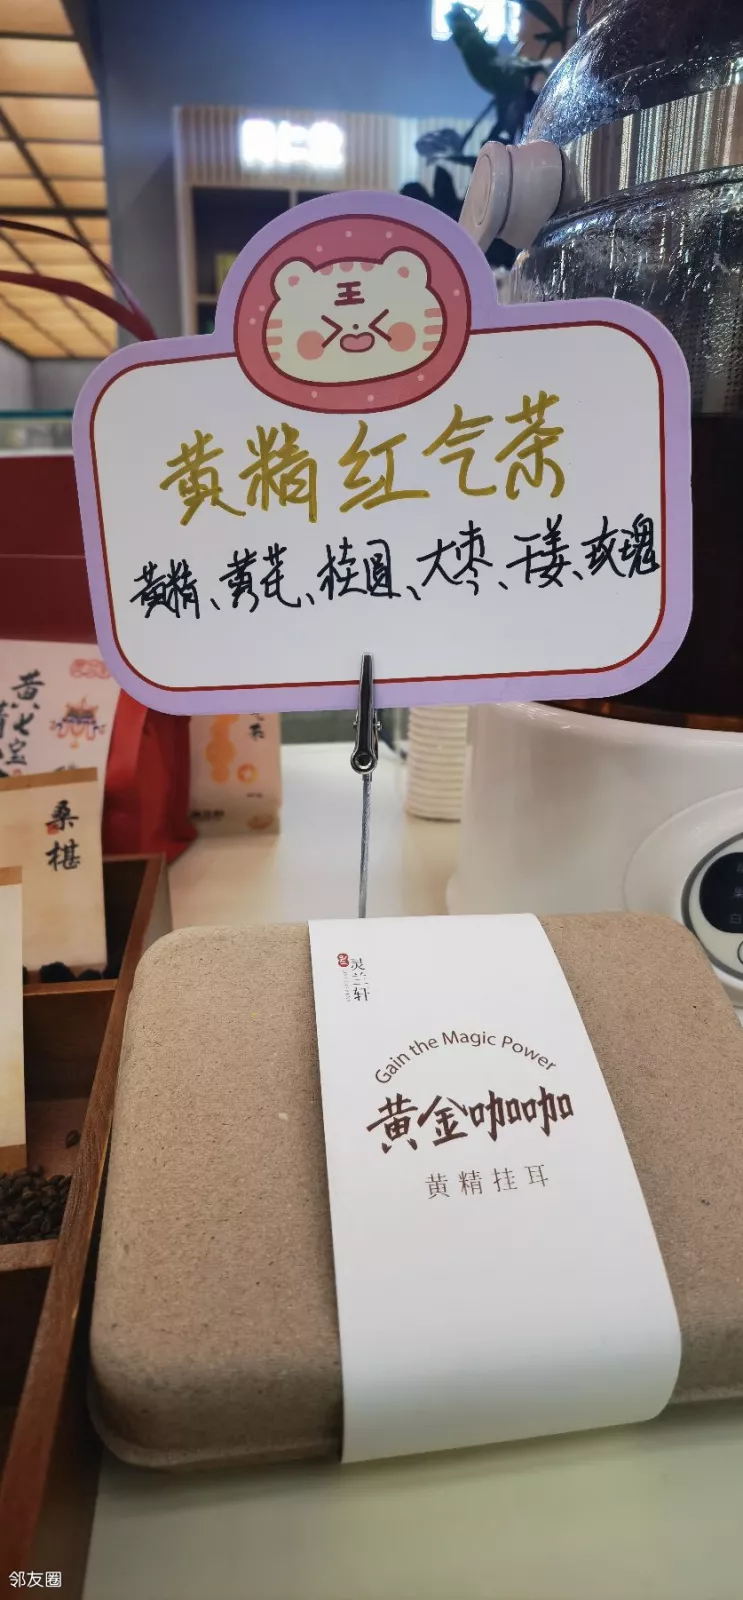 王
黄精红气茶
黄精、黄芪、桂圆、大枣、干姜、玫瑰
黄七宝
桑椹
灵兰轩
Gain the Magic Power
黄金咖咖
黄精挂耳
邻友圈